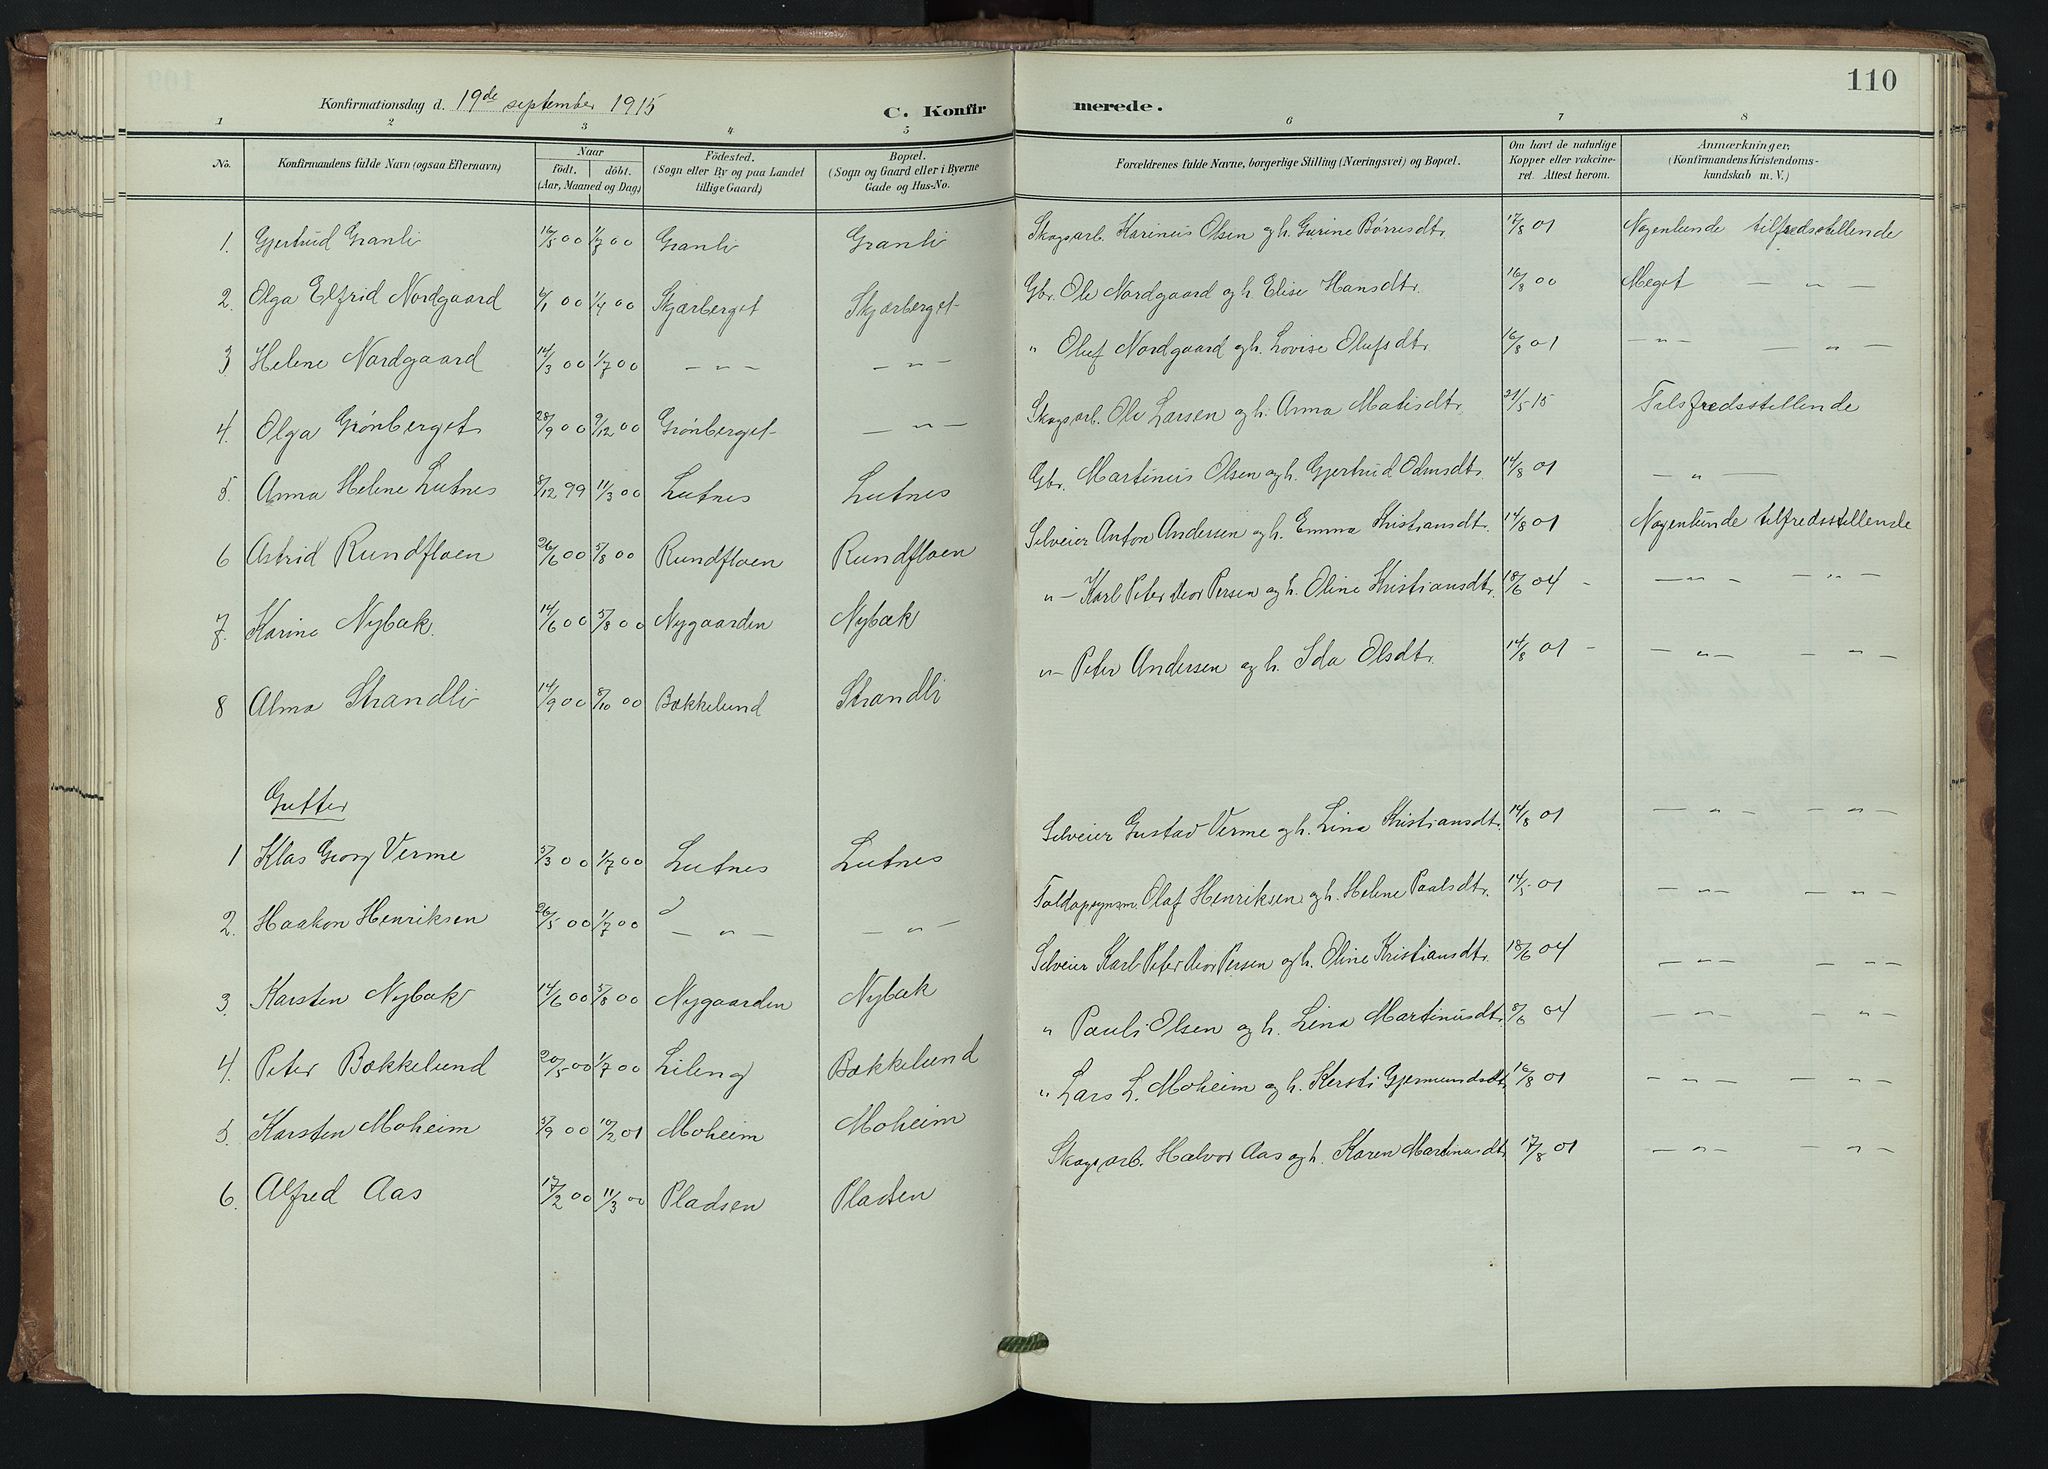 110
Konfirmationsdag d. 19de september 1915 C. Konfirmerede.
1 2 3 4 5 6 7 8
No. Konfirmandens fulde Navn (ogsaa Efternavn) Naar födt. döbt. (Aar, Maaned og Dag) Födested. (Sogn eller By og paa Landet tillige Gaard) Bopæl. (Sogn og Gaard eller i Byerne Gade og Hus-No. Forældrenes fulde Navne, borgerlige Stilling (Næringsvei) og Bopæl. Om havt de naturlige Kopper eller vakcineret. Attest herom. Anmærkninger. (Konfirmandens Kristendomskundskab m. V.)
1. Gjertrud Granli 16/5 00 1/7 00 Granli Granli Skogsarb. Karinius Olsen og h. Gurine Børresdtr. 17/8 01 Nogenlunde tilfredsstillende
2. Olga Elfrid Nordgaard 6/1 00 1/4 00 Skjærberget Skjærberget Gbr. Ole Nordgaard og h. Elise Hansdtr. 16/8 00 Meget — " —
3. Helene Nordgaard 14/3 00 1/7 00 — " — — " — " Oluf Nordgaard og h. Lovise Olufsdtr. 16/8 01 — " — — " —
4. Olga Grønberget 28/9 00 9/12 00 Grønberget — " — Skogsarb. Ole Larsen og h. Anna Matisdtr. 21/5 15 Tilfredsstillende
5. Anna Helene Lutnes 8/12 99 11/3 00 Lutnes Lutnes Gbr. Martinius Olsen og h. Gjertrud Odinsdtr. 14/8 01 — " —
6 Astrid Rundfloen 26/6 00 5/8 00 Rundfloen Rundfloen Selveier Anton Andersen og h. Emma Kristiansdtr. 14/8 01 Nogenlunde tilfredsstillende
7. Karine Nybak 14/6 00 5/8 00 Nygaarden Nybæk " — Karl Peter Mor Persen og h. Oline Kristiansdtr. 18/6 04 - — " — — " —
8 Alma Strandli 14/9 00 8/10 00 Bækkelund Strandli " — Peter Andersen og h. Ida Olsdtr. 14/8 01 - — " — — " —
Gutter
1 Klas Georg Verme 5/3 00 1/7 00 Lutnes Lutnes Selveier Gustav Verme og h. Lina Kristiansdtr. 14/8 01 — " — — " —
2. Haakon Henriksen 26/5 00 1/7 00 — " — — " — Toldopsynsm. Olaf Henriksen og h. Helene Paulsdtr. 14/5 01 — " — — " —
3. Karsten Nybak 14/6 00 5/8 00 Nygaarden Nybæk Selveier Karl Peter Mor Persen og h. Oline Kristiansdtr. 18/6 04 — " — — " —
4. Peter Bækkelund 20/5 00 1/7 00 Liling Bækkelund " Pauli Olsen og h. Lina Martinusdtr. 8/6 04 — " — — " —
5. Karsten Moheim 5/9 00 10/2 01 Moheim Moheim " Lars L. Moheim og h. Kersti Gjermundsdtr. 16/8 01 — " — — " —
6. Alfred Aas 17/2 00 11/3 00 Pladsen Pladsen Skogsarb. Halvor Aas og h. Karen Martinusdtr. 17/8 01 — " — — " —